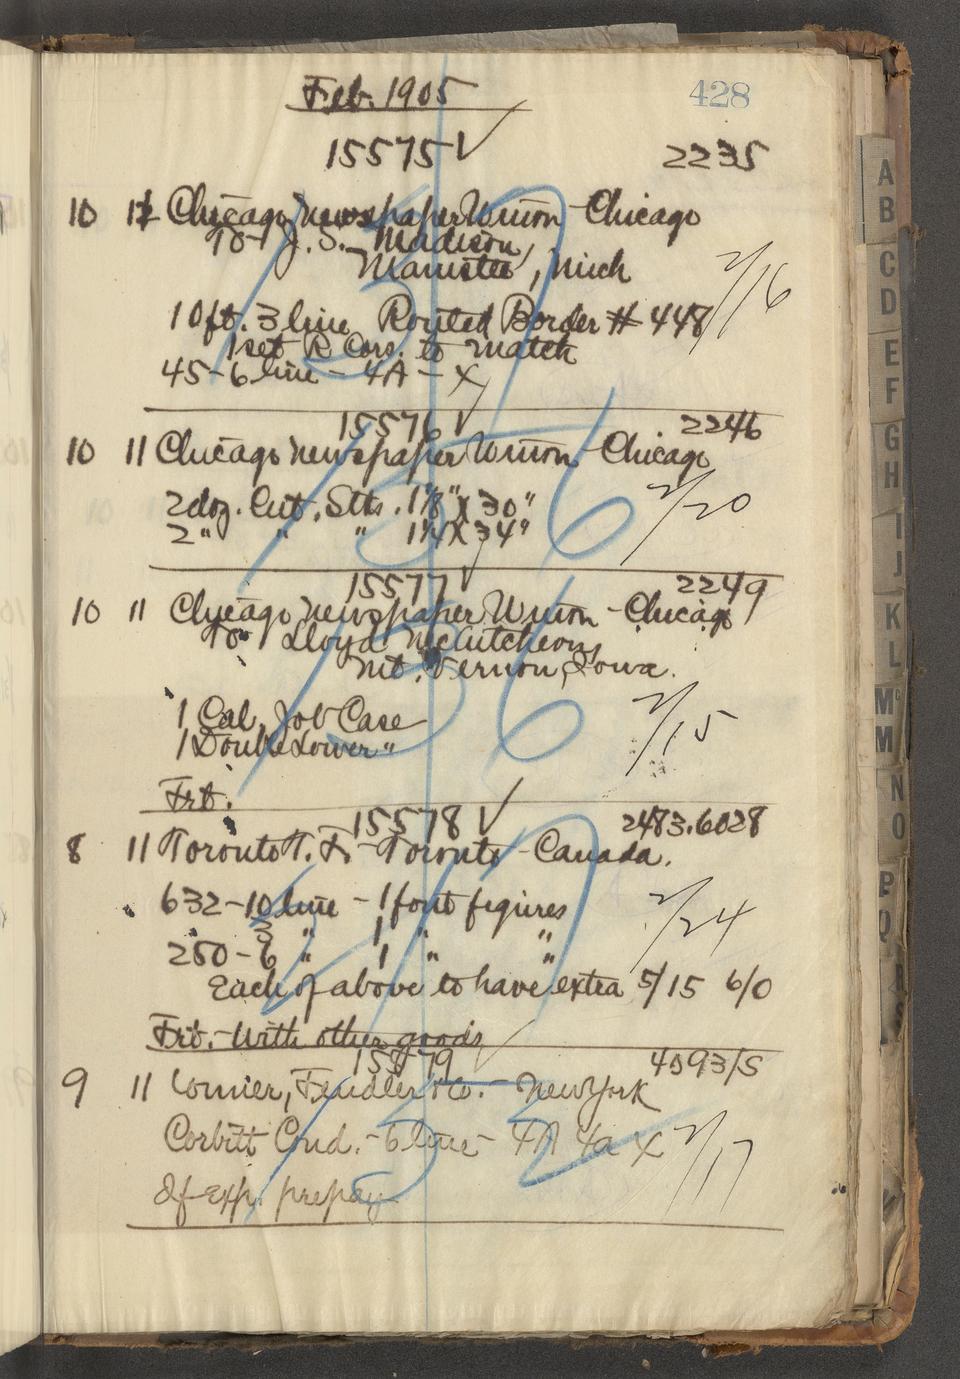 Feb. 1905
428
15575 ✓ 2235
10 11 Chicago Newspaper Union - Chicago
To J. S. Madison,
Manistee, Mich
2/16
10 ft. 3 line Routed Border # 448
1 set R Cors. to match
45 - 6 line - 4A - X
15576 ✓ 2246
10 11 Chicago Newspaper Union - Chicago
2 doz. Cut. Stks. 1 1/8" X 30"
2 " " " 1 1/4 X 34"
2/20
15577 ✓ 2249
10 11 Chicago Newspaper Union - Chicago
To Lloyd McCutcheon,
Mt. Vernon, Iowa.
1 Cal. Job Case
1 Double Lower "
2/15
Frt.
15578 ✓ 2483.6028
8 11 Toronto T. F. - Toronto - Canada.
632 - 10 line - 1 font figures
3 " 1 " "
250 - 6 " 1 " "
2/24
Each of above to have extra 5/15 6/0
Frt. - With other goods
15579 ✓ 4093/5
9 11 Fendler & Co. - New York
Corbitt Cond. - 6 line - 4A 4a X
2/17
If Exp. prepay
A
B
C
D
E
F
G
H
I
J
K
L
Mc
M
N
O
P
Q
R
S